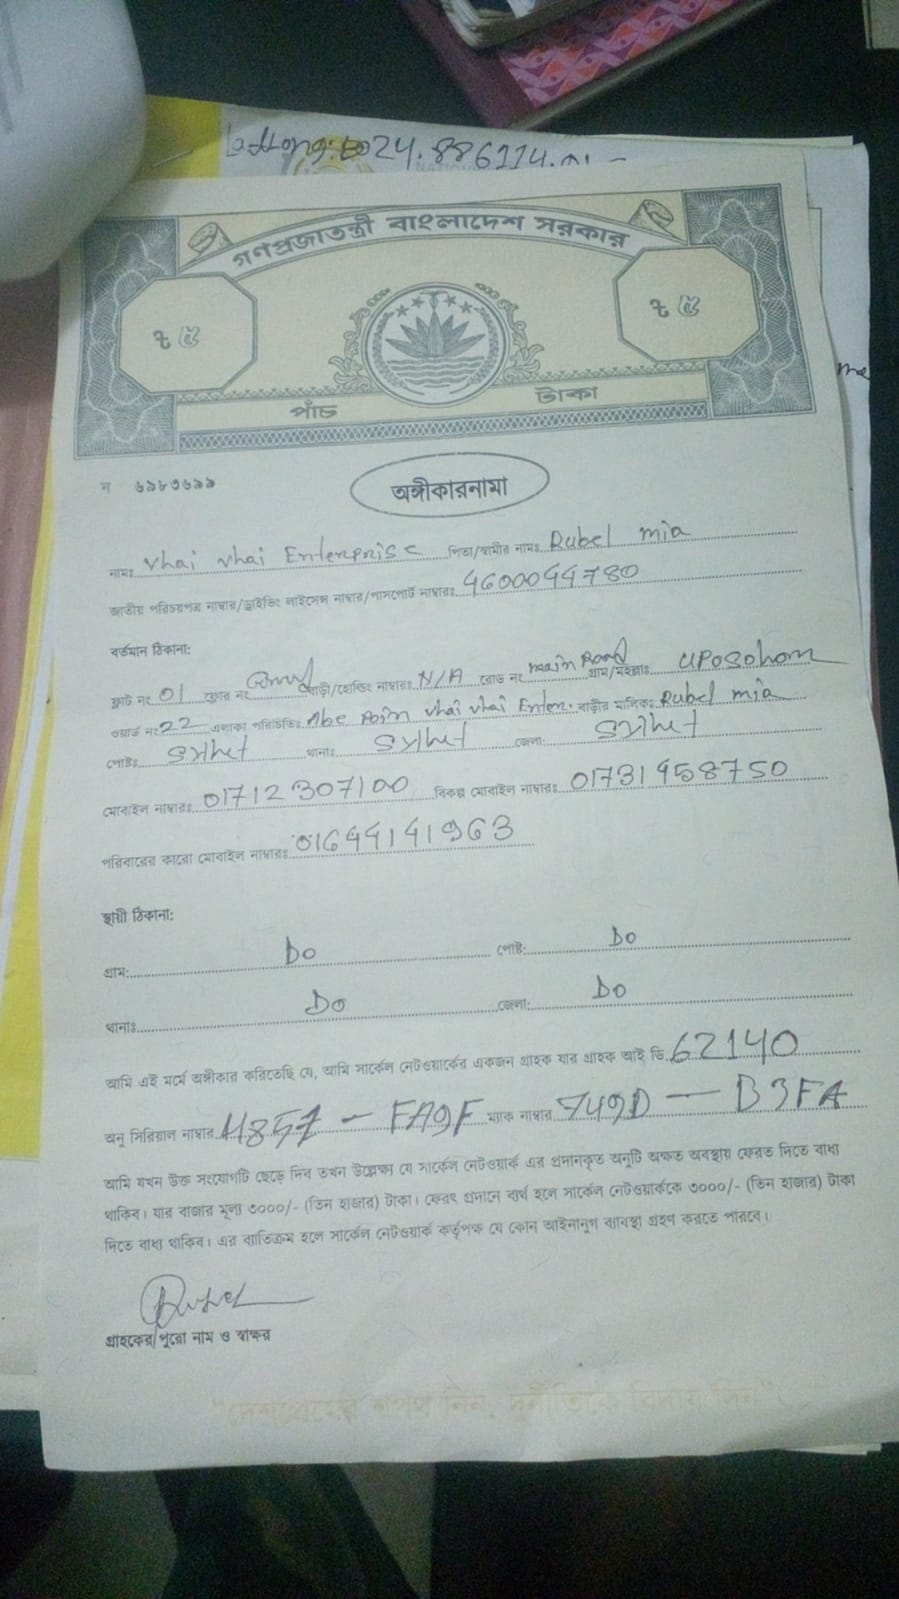 গণপ্রজাতন্ত্রী বাংলাদেশ সরকার
৳ ৫ ৳ ৫
পাঁচ টাকা
ন ৬৯৮৩৬৯৯
অঙ্গীকারনামা
নামঃ Vhai Vhai Enterprise পিতা/স্বামীর নামঃ Rubel mia
জাতীয় পরিচয়পত্র নাম্বার/ড্রাইভিং লাইসেন্স নাম্বার/পাসপোর্ট নাম্বারঃ 4600044780
বর্তমান ঠিকানা:
ফ্লাট নং 01 ফ্লোর নং বাড়ী/হোল্ডিং নাম্বারঃ N/A রোড নং main Road গ্রাম/মহল্লাঃ UPOSohom
ওয়ার্ড নং 22 এলাকা পরিচিতিঃ Vhai Vhai Enter. বাড়ীর মালিকঃ Rubel mia
পোষ্টঃ Sylhet থানাঃ Sylhet জেলা: Sylhet
মোবাইল নাম্বারঃ 01712307100 বিকল্প মোবাইল নাম্বারঃ 01731458750
পরিবারের কারো মোবাইল নাম্বারঃ 01644141963
স্থায়ী ঠিকানা:
গ্রাম: Do পোষ্ট: Do
থানাঃ Do জেলা: Do
আমি এই মর্মে অঙ্গীকার করিতেছি যে, আমি সার্কেল নেটওয়ার্কের একজন গ্রাহক যার গ্রাহক আই ডি 62140
অনু সিরিয়াল নাম্বার - FA9F ম্যাক নাম্বার 749D - B3FA
আমি যখন উক্ত সংযোগটি ছেড়ে দিব তখন উল্লেক্ষ্য যে সার্কেল নেটওয়ার্ক এর প্রদানকৃত অনুটি অক্ষত অবস্থায় ফেরত দিতে বাধ্য
থাকিব। যার বাজার মূল্য ৩০০০/- (তিন হাজার) টাকা। ফেরৎ প্রদানে ব্যর্থ হলে সার্কেল নেটওয়ার্ককে ৩০০০/- (তিন হাজার) টাকা
দিতে বাধ্য থাকিব। এর ব্যতিক্রম হলে সার্কেল নেটওয়ার্ক কর্তৃপক্ষ যে কোন আইনানুগ ব্যবস্থা গ্রহণ করতে পারবে।
Rubel
গ্রাহকের পুরো নাম ও স্বাক্ষর
"দেশপ্রেমের শপথ নিন, দুর্নীতিকে বিদায় দিন"